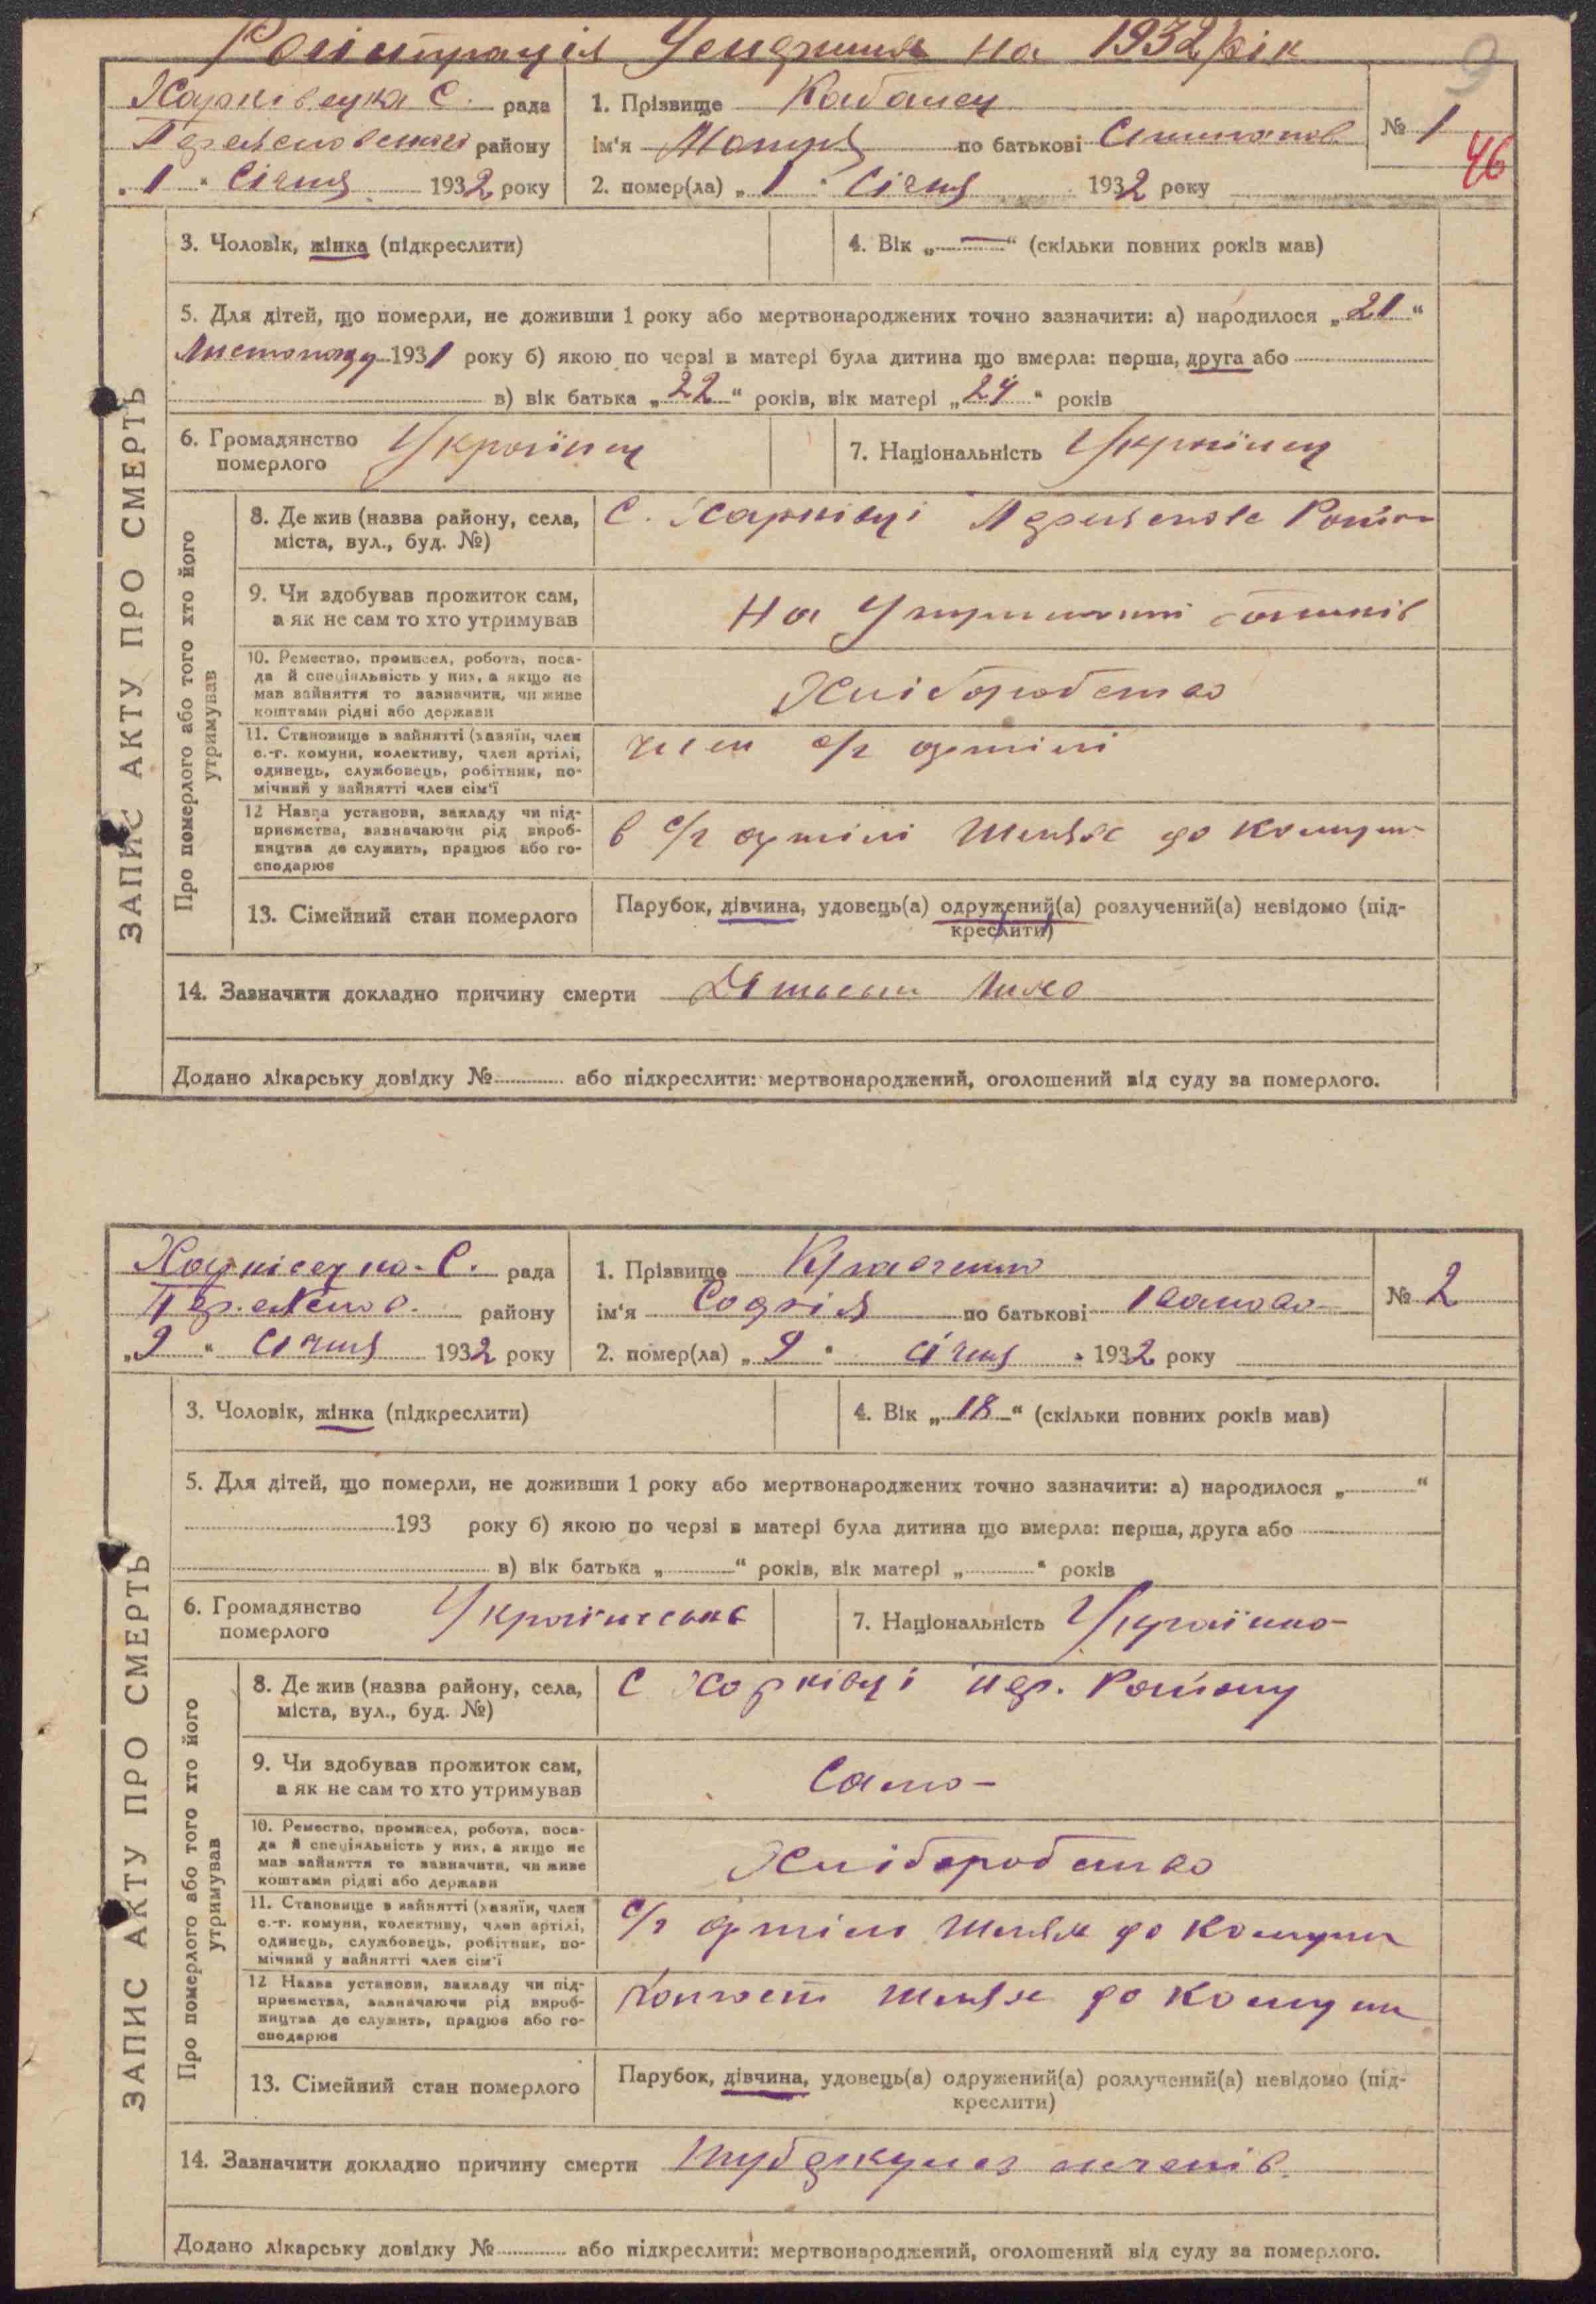 Регистрація Умерших на 1932 рік
9
46
Харківецка С. рада
Переяславського району
„1“ Січня 1932 року
1. Прізвище Кабанец
ім'я Мотря по батькові
2. помер(ла) „1“ Січня 1932 року
№ 1
3. Чоловік, жінка (підкреслити)
4. Вік „—“ (скільки повних років мав)
5. Для дітей, що померли, не доживши 1 року або мертвонароджених точно зазначити: а) народилося „21“
Листопаду 1931 року б) якою по черзі в матері була дитина що вмерла: перша, друга або
в) вік батька „22“ років, вік матері „24“ років
6. Громадянство
померлого
Українец
7. Національність Українец
ЗАПИС АКТУ ПРО СМЕРТЬ
Про померлого або того хто його
утримував
8. Де жив (назва району, села,
міста, вул., буд. №)
С. Харківці Переяслав Район
9. Чи здобував прожиток сам,
а як не сам то хто утримував
На Утриманні батьків
10. Ремество, промисел, робота, поса-
да й спеціяльність у них, а якщо не
мав зайняття то зазначити, чи живе
коштами рідні або держави
Хліборобство
11. Становище в зайнятті (хазяїн, член
с.-г. комуни, колективу, член артілі,
одинець, службовець, робітник, по-
мічний у зайнятті член сім'ї
член с/г артілі
12 Назва установи, закладу чи під-
приємства, зазначаючи рід вироб-
ництва де служить, працює або го-
сподарює
в с/г артілі Шлях до Комуни
13. Сімейний стан померлого
Парубок, дівчина, удовець(а) одружений(а) розлучений(а) невідомо (під-
креслити)
14. Зазначити докладно причину смерти
Додано лікарську довідку № або підкреслити: мертвонароджений, оголошений від суду за померлого.
Харківецка С. рада
Переяслав. району
„9“ Січня 1932 року
1. Прізвище Кравченко
ім'я Софія по батькові Іванова
2. помер(ла) „9“ січня 1932 року
№ 2
3. Чоловік, жінка (підкреслити)
4. Вік „18“ (скільки повних років мав)
5. Для дітей, що померли, не доживши 1 року або мертвонароджених точно зазначити: а) народилося „“
193 року б) якою по черзі в матері була дитина що вмерла: перша, друга або
в) вік батька „“ років, вік матері „“ років
6. Громадянство
померлого
7. Національність Українка
ЗАПИС АКТУ ПРО СМЕРТЬ
Про померлого або того хто його
утримував
8. Де жив (назва району, села,
міста, вул., буд. №)
С Харківці Пер. Району
9. Чи здобував прожиток сам,
а як не сам то хто утримував
Сама
10. Ремество, промисел, робота, поса-
да й спеціяльність у них, а якщо не
мав зайняття то зазначити, чи живе
коштами рідні або держави
Хліборобство
11. Становище в зайнятті (хазяїн, член
с.-г. комуни, колективу, член артілі,
одинець, службовець, робітник, по-
мічний у зайнятті член сім'ї
с/г артіли Шлях до Комуни
12 Назва установи, закладу чи під-
приємства, зазначаючи рід вироб-
ництва де служить, працює або го-
сподарює
Шлях до Комуни
13. Сімейний стан померлого
Парубок, дівчина, удовець(а) одружений(а) розлучений(а) невідомо (під-
креслити)
14. Зазначити докладно причину смерти Туберкульоз легенів.
Додано лікарську довідку № або підкреслити: мертвонароджений, оголошений від суду за померлого.